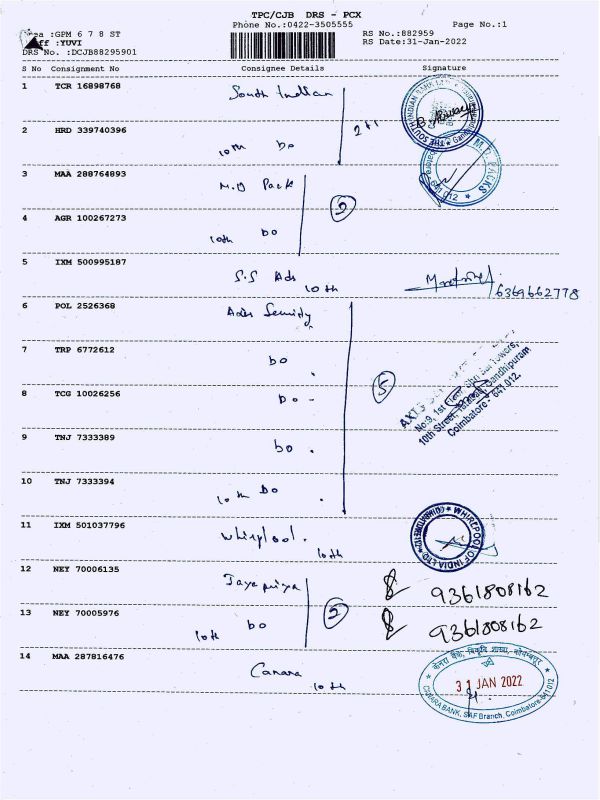 TPC/CJB DRS - PCX
Phone No.:0422-3505555 Page No.:1
:GPM 6 7 8 ST RS No.:882959
:YUVI RS Date:31-Jan-2022
DRS No. :DCJB88295901
S No Consignment No Consignee Details Signature
1 TCR 16898768 South Indian
2 HRD 339740396 10th Do 2+1
3 MAA 288764893 M.D Pack
4 AGR 100267273 10th Do 2
5 IXM 500995187 S.S Ads 10th 6369662778
6 POL 2526368
7 TRP 6772612 Do
8 TCG 10026256 Do 5
No:9, 1st Floor, Shri Sai Towers,
10th Street, Gandhipuram
Coimbatore - 641 012.
9 TNJ 7333389 Do
10 TNJ 7333394 10th Do
11 IXM 501037796 Whirlpool. 10th
WHIRLPOOL OF INDIA LTD
12 NEY 70006135 Jayapriya 9361808162
13 NEY 70005976 10th Do 2 9361808162
14 MAA 287816476 Canara 10th
31 JAN 2022
CANARA BANK, SAF Branch, Coimbatore-641 012